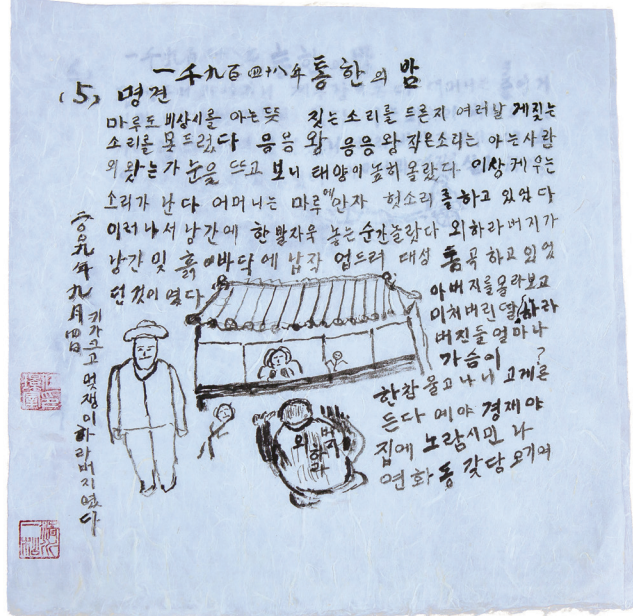 一千九百四十八年 통한의 밤
(5) 명견
마루도 비상시를 아는듯 짖는소리를 드른지 여러날 게짖는
소리를 못드렀다 응응 왕 응응 와 작은소리는 아는사람
외 왔는가 눈을 뜨고 보니 태양이 높히 올랐다 이상케 우는
소리가 난다 어머니는 마루에 안자 헛소리를 하고 있었다
이러나서 낭간에 한발자욱 놓는순간놀랐다 외하라버지가
낭간 및 흙바닥에 납작 업드려 대성 통곡 하고 있었
던것이였다
아버지를올라보고
미처버린 딸 하라
버진들 얼마나
가슴이?
한참 울고나니 고게른
든다 예야 경재야
집에 노람시민 나
연화동 갓담 오기여
외하라버지
二〇〇九年 九月 四日
키가크고 멋쟁이하라버지였다